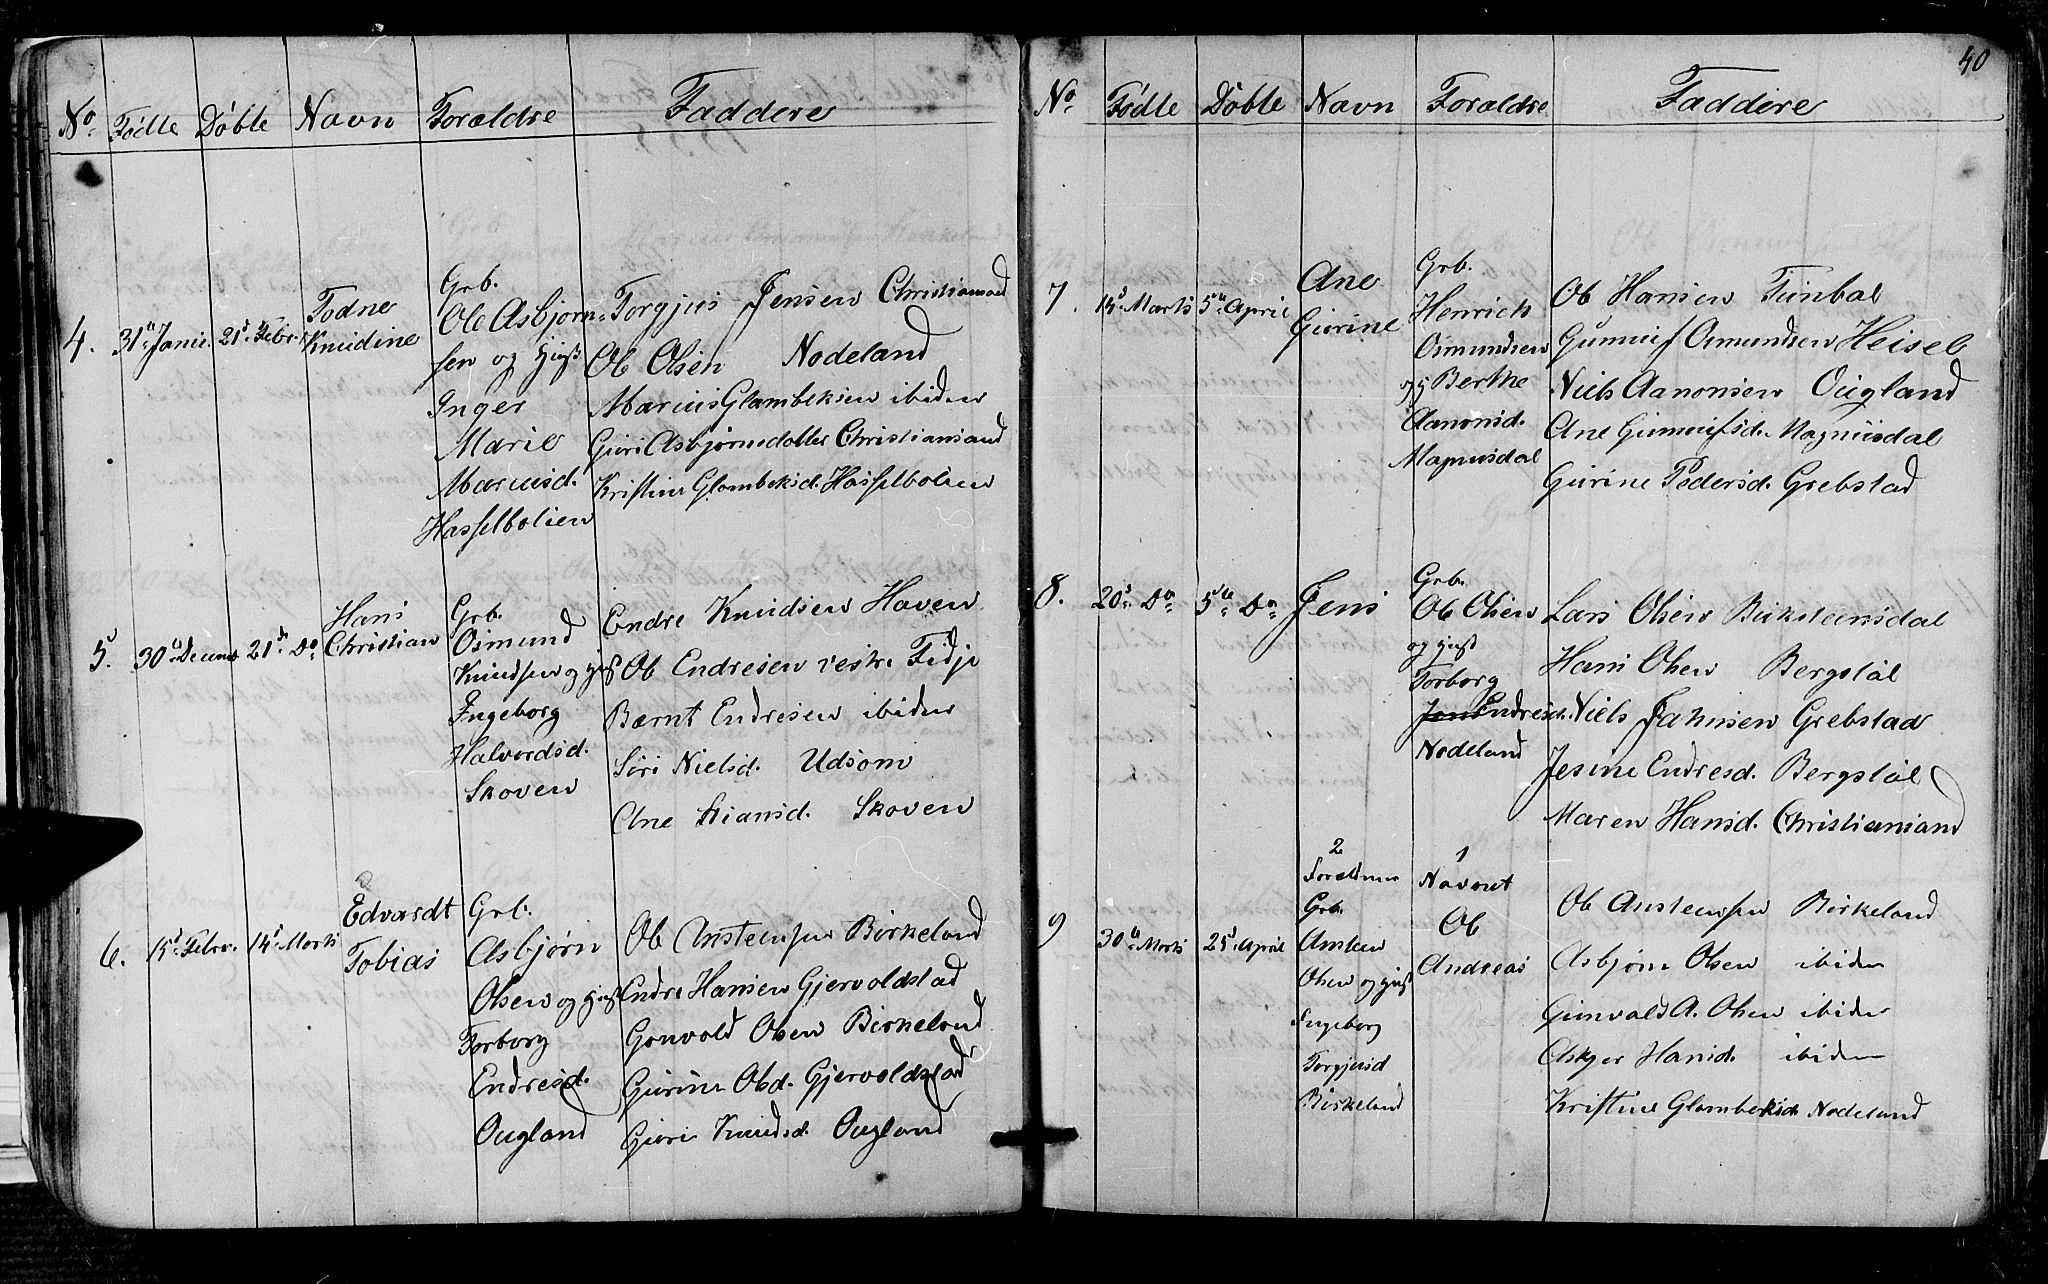 No. Fødte Døbte Navn Forældre Faddere
4. 31te Janu. 21d Febr. Todne Knudine
Grb.
Ole Asbjørn-
sen og Hust
Inger
Marie
Mariusd.
Hasselbolien
Torgjus Jensen Christiansand
Ole Olsen Nodeland
Marius Glambeksen ibiden
Guri Asbjørnsdatter Christiansand
Kristine Glambeksd. Hasselbolien
5. 30te Decemb 21d. Do. Hans Christian
Grb.
Osmund
Knudsen og Hust
Ingeborg
Halvordsd.
Skoven
Endre Knudsen Haven
Ole Endresen vestre Fidje
Bærnt Endresen ibiden
Siri Nielsd. Udsom
Ane Stiansd. Skoven
6. 15d. Febr. 14d. Marts Edvardt Tobias
Grb.
Asbjørn
Olsen og Hust
Torborg
Endresd.
Ougland
Ole Anstensen Birkeland
Endre Hansen Gjervoldstad
Gonvold Olsen Birkeland
Gurine Olsd. Gjervoldstad
Guri Knudsd. Ougland
40
No. Fødte Døbte Navn Forældre Faddere
7. 14d. Marts 5te April Ane Gurine
Grb.
Henrich
Osmundsen
og Berthe
Aanonsd.
Magnusdal
Ole Hansen Tunbal
Gunnuf Osmundsen Heisel
Niels Aanonsen Ougland
Ane Gunnufsd. Magnusdal
Gurine Pedersd. Grebstad
8. 20d. Do. 5te Do. Jens
Grb.
Ole Olsen
og Hust
Torborg
Endresd.
Nodeland
Lars Olsen Buksteensdal
Hans Olsen Bergstøl
Niels Jahnsen Grebstad
Jesine Endresd. Bergstøl
Maren Hansd. Christiansand
9 30te Marts 25d. April
2
Forældrene
Grb.
Ansteen
Olsen og Hust
Ingeborg
Torgjusd
Birkeland
1
Navnet
Ole
Andreas
Ole Ansteensen Birkeland
Asbjørn Olsen ibiden
Gunvald A. Olsen ibiden
Asger Hansd. ibiden
Kristine Glambeksd. Nodeland